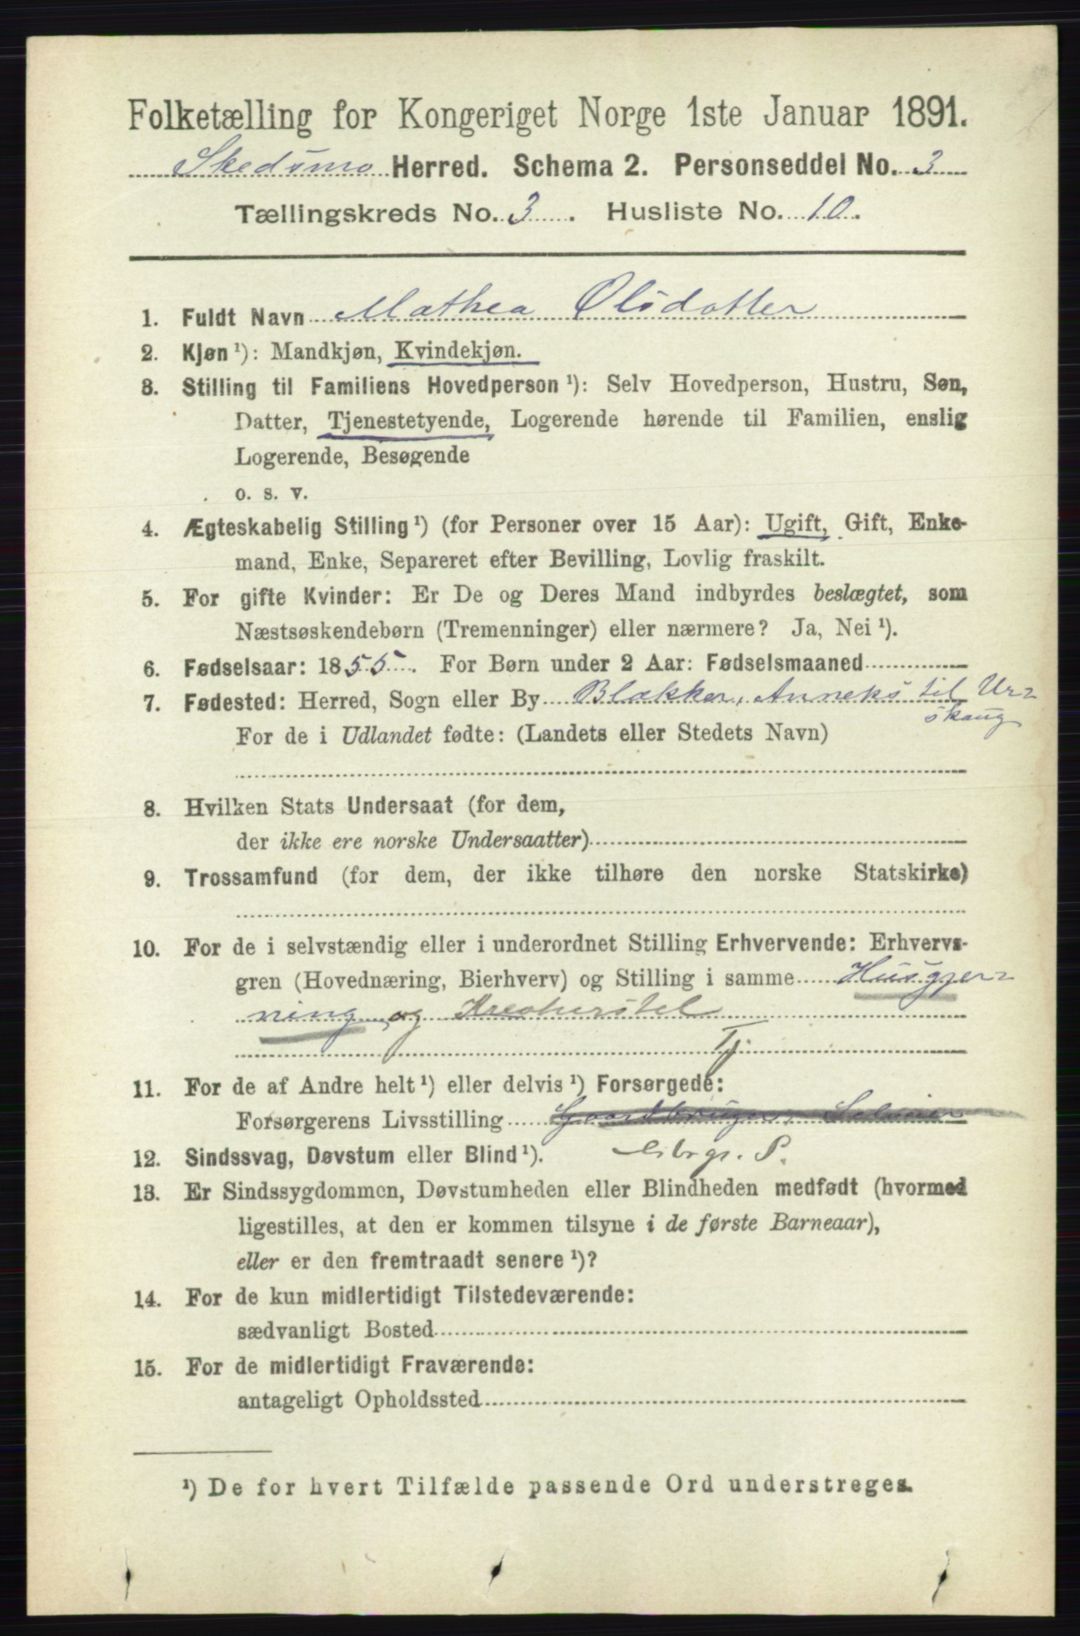 Folketælling for Kongeriget Norge 1ste Januar 1891.
Skedsmo Herred. Schema 2. Personseddel No. 3
Tællingskreds No. 3. Husliste No. 10.
1. Fuldt Navn Mathea Olsdatter
2. Kjøn ¹): Mandkjøn, Kvindekjøn.
3. Stilling til Familiens Hovedperson ¹): Selv Hovedperson, Hustru, Søn,
Datter, Tjenestetyende, Logerende hørende til Familien, enslig
Logerende, Besøgende
o. s. v.
4. Ægteskabelig Stilling ¹) (for Personer over 15 Aar): Ugift, Gift, Enke-
mand, Enke, Separeret efter Bevilling, Lovlig fraskilt.
5. For gifte Kvinder: Er De og Deres Mand indbyrdes beslægtet, som
Næstsøskendebørn (Tremenninger) eller nærmere? Ja, Nei ¹).
6. Fødselsaar: 1855. For Børn under 2 Aar: Fødselsmaaned
7. Fødested: Herred, Sogn eller By Blakker, Anneks til Ur-
skaug
For de i Udlandet fødte: (Landets eller Stedets Navn)
8. Hvilken Stats Undersaat (for dem,
der ikke ere norske Undersaatter)
9. Trossamfund (for dem, der ikke tilhøre den norske Statskirke)
10. For de i selvstændig eller i underordnet Stilling Erhvervende: Erhvervs-
gren (Hovednæring, Bierhverv) og Stilling i samme Husgjer-
ning og Kreaturstel
Tj.
11. For de af Andre helt ¹) eller delvis ¹) Forsørgede:
Forsørgerens Livsstilling Gaardbruger, Selveier
12. Sindssvag, Døvstum eller Blind ¹). P.
13. Er Sindssygdommen, Døvstumheden eller Blindheden medfødt (hvormed
ligestilles, at den er kommen tilsyne i de første Barneaar),
eller er den fremtraadt senere ¹)?
14. For de kun midlertidigt Tilstedeværende:
sædvanligt Bosted
15. For de midlertidigt Fraværende:
antageligt Opholdssted
¹) De for hvert Tilfælde passende Ord understreges.